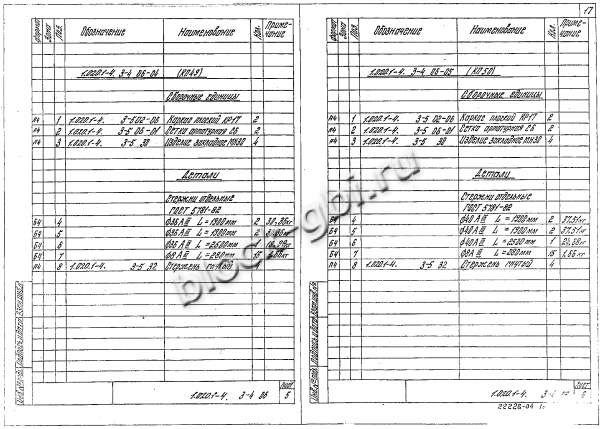 17
Формат Зона Поз. Обозначение Наименование Кол. Примечание
1.020.1-4. 3-4 06-04 (КП49)
Сборочные единицы
А4 1 1.020.1-4. 3-5 02-06 Каркас плоский КР17 2
А4 2 1.020.1-4. 3-5 06-01 Сетка арматурная С6 2
А4 3 1.020.1-4. 3-5 30 Изделие закладное 4
Детали
Стержни отдельные
ГОСТ 5781-82
БЧ 4 ф36АIII L=1900мм 2
БЧ 5 ф36АIII L=1900мм 2
БЧ 6 ф36АIII L=2500мм 1
БЧ 7 ф8АIII L=280мм 15
А4 8 1.020.1-4. 3-5 32 Стержень гнутый 4
1.020.1-4. 3-4 06
Лист
5
Формат Зона Поз. Обозначение Наименование Кол. Примечание
1.020.1-4. 3-4 06-05 (КП50)
Сборочные единицы
А4 1 1.020.1-4. 3-5 02-06 Каркас плоский КР17 2
А4 2 1.020.1-4. 3-5 06-01 Сетка арматурная С6 2
А4 3 1.020.1-4. 3-5 30 Изделие закладное 4
Детали
Стержни отдельные
ГОСТ 5781-82
БЧ 4 ф40АIII L=1900мм 2 37,51кг
БЧ 5 ф40АIII L=1900мм 2 37,51кг
БЧ 6 ф40АIII L=2500мм 1
БЧ 7 ф8АIII L=280мм 15 1,66кг
А4 8 1.020.1-4. 3-5 32 Стержень гнутый 4
1.020.1-4. 3-4
Лист
6
22226-04
blok-gbi.ru